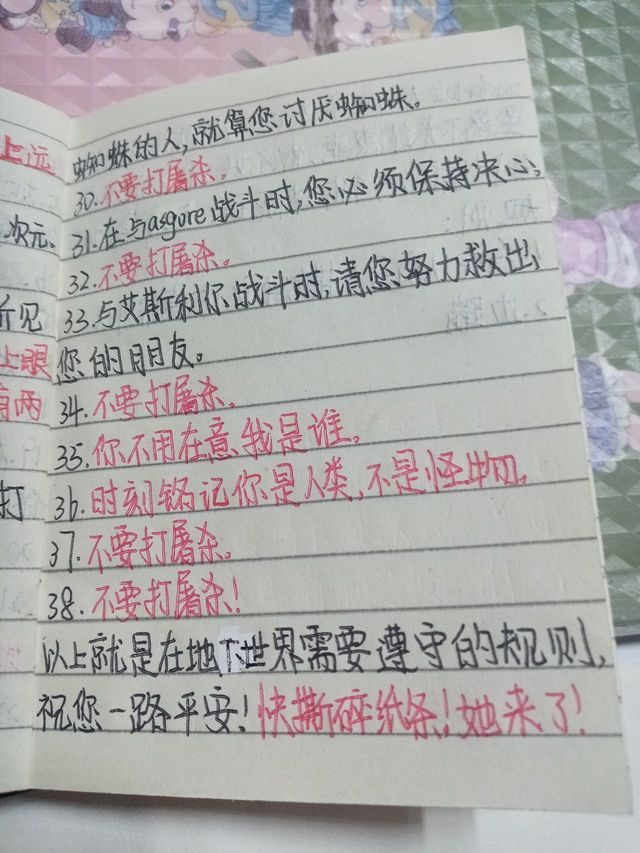 上远
次元、
听见
上眼
有两
打
蜘蛛的人,就算您讨厌蜘蛛。
30.不要打屠杀。
31.在与asgore战斗时,您必须保持决心;
32.不要打屠杀。
33.与艾斯利尔战斗时,请您努力救出
您的朋友。
34.不要打屠杀。
35.你不用在意我是谁。
36.时刻铭记你是人类,不是怪物。
37.不要打屠杀。
38.不要打屠杀!
以上就是在地下世界需要遵守的规则,
祝您一路平安!快撕碎纸条!她来了!